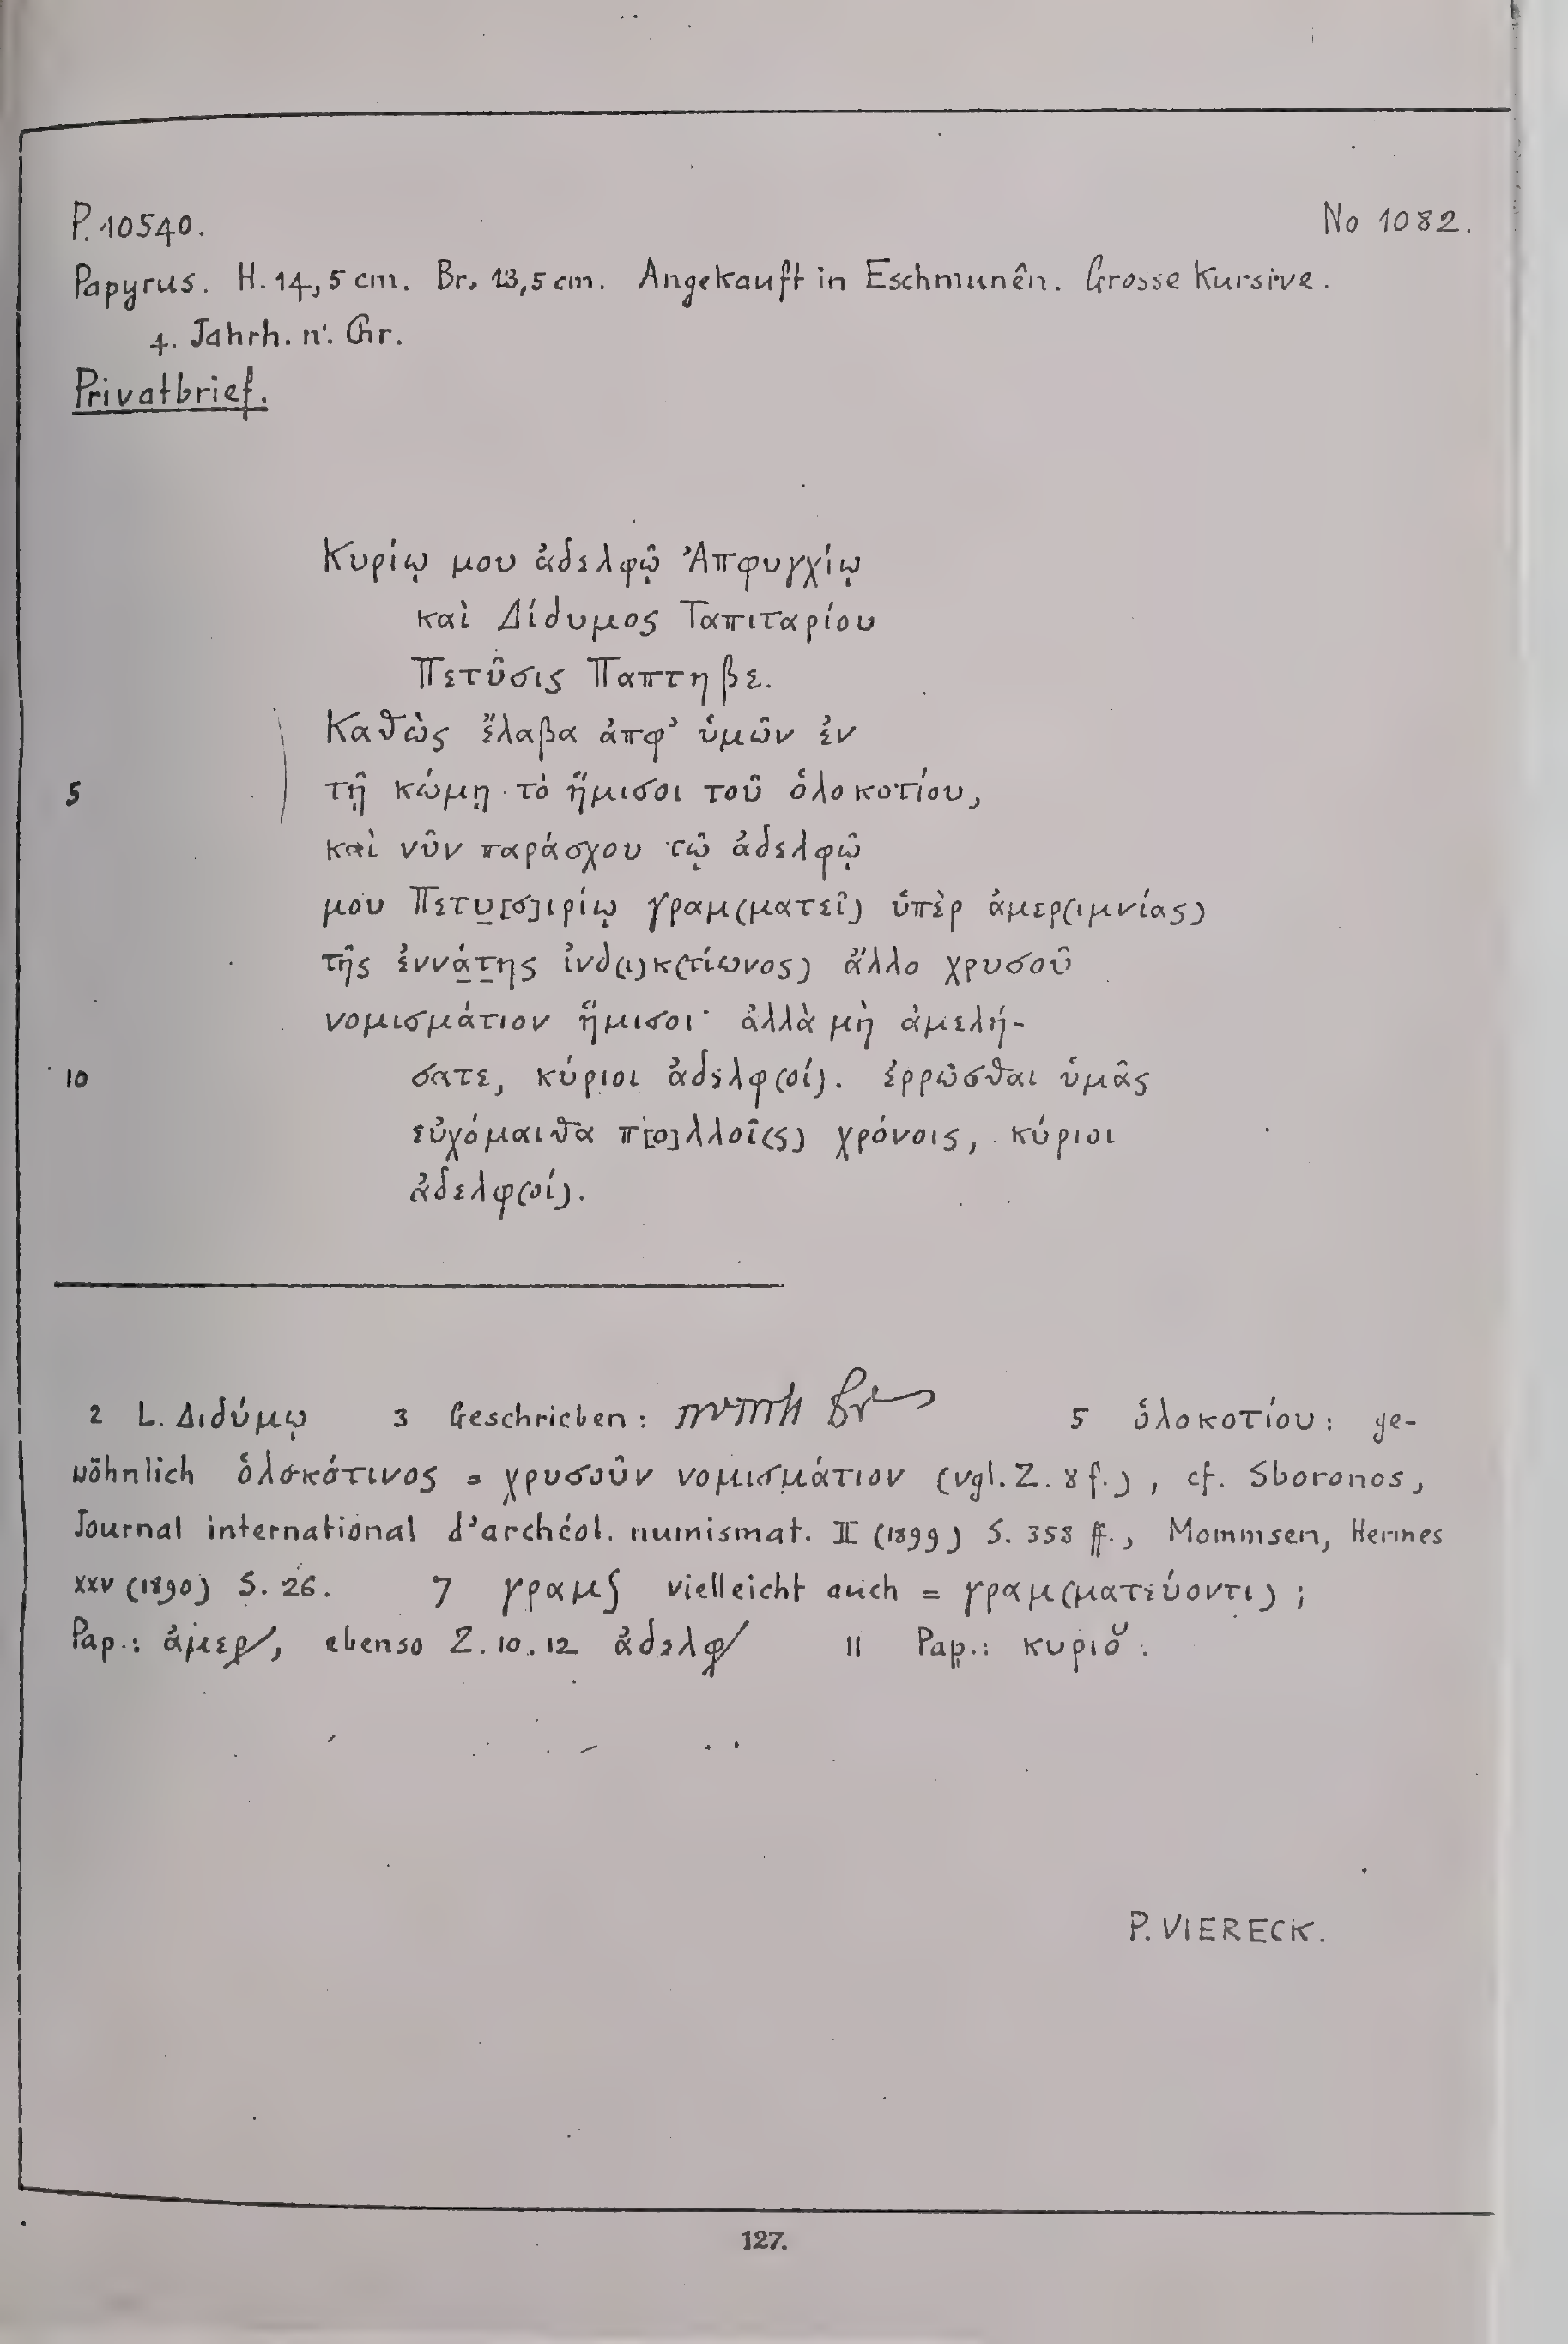 P. 10540. No 1082.
Papyrus. H. 14,5 cm. Br. 13,5 cm. Angekauft in Eschmunên. Grosse Kursive.
4. Jahrh. n. Chr.
Privatbrief.
Κυρίῳ μου ἀδελφῷ Ἀπφυγχίῳ
καὶ Δίδυμος Ταπιταρίου
Πετῦσις Παπτηβε.
Καθὼς ἔλαβα ἀπφ’ ὑμῶν ἐν
5 τῇ κώμῃ τὸ ἥμισοι τοῦ ὁλοκοτίου,
καὶ νῦν παράσχου τῷ ἀδελφῷ
μου Πετυ̲[σ]ιρίῳ γραμ(ματεῖ) ὑπὲρ ἀμερ(ιμνίας)
τῆς ἐννά̲τ̲ης ἰνδ(ι)κ(τίωνος) ἄλλο χρυσοῦ
νομισμάτιον ἥμισοι· ἀλλὰ μὴ ἀμελή-
10 σατε, κύριοι ἀδελφ(οί). ἐρρῶσθαι ὑμᾶς
εὐχόμαιθα π[ο]λλοῖ(ς) χρόνοις, κύριοι
ἀδελφ(οί).
2 L. Διδύμῳ 3 Geschrieben: 5 ὁλοκοτίου: ge-
wöhnlich ὁλοκότινος = χρυσοῦν νομισμάτιον (vgl. Z. 8 f.), cf. Sboronos,
Journal international d'archéol. numismat. II (1899) S. 358 ff., Mommsen, Hermes
XXV (1890) S. 26. 7 γραμʃ vielleicht auch = γραμ(ματεύοντι);
Pap.: ἀμερ/, ebenso Z. 10. 12 ἀδελφ/ 11 Pap.: κυριο̆.
P. VIERECK.
127.